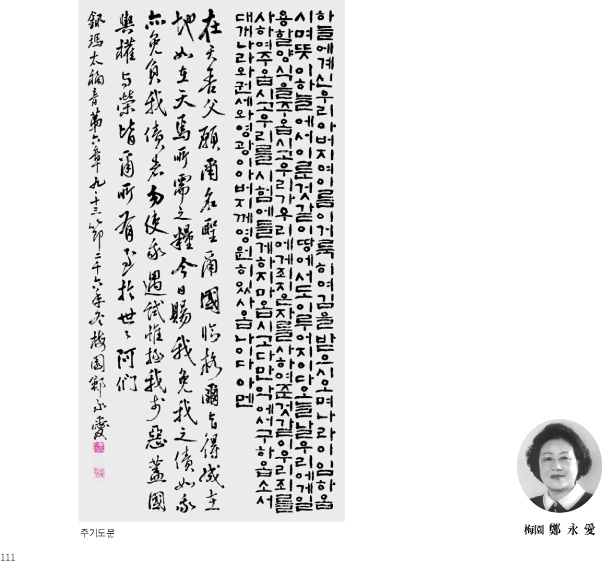 하늘에계신우리아버지여이름이거룩히여김을받으시오며나라이임하옵
시며뜻이하늘에서이룬것같이땅에서도이루어지이다오늘날우리에게일
용할양식을주옵시고우리가우리에게죄지은자를사하여준것같이우리죄를
사하여주옵시고우리를시험에들게하지마옵시고다만악에서구하옵소서
대개나라와권세와영광이아버지께영원히있사옵나이다아멘
在天吾父願爾名聖爾國臨格爾旨得成在
地如在天焉所需之糧今日賜我免我之債如我
亦免負我債者勿使我遇試惟拯我於惡蓋國
與權與榮皆爾所有至於世〻阿們
錄瑪太福音第六章九·十三節二千六年冬梅園鄭永愛
주기도문
梅園 鄭永愛
111